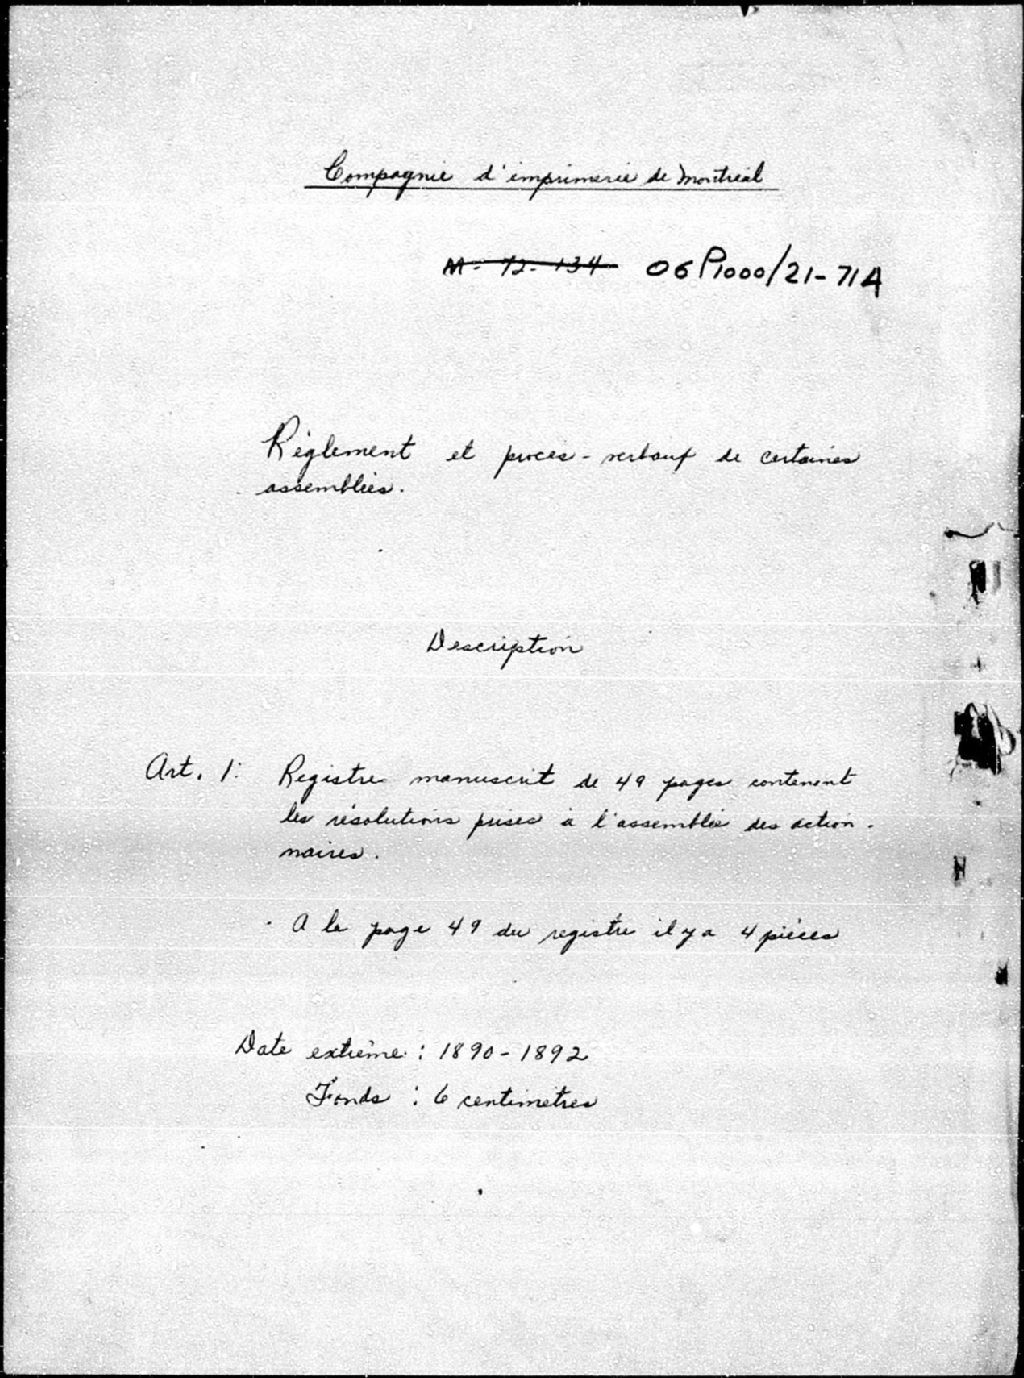 Compagnie d'imprimerie de Montréal
M-72-134 06 P1000/21-71A
Règlement et procès-verbaux de certaines
assemblées.
Description
Art. 1: Registre manuscrit de 49 pages contenant
les résolutions prises à l'assemblée des action-
naires.
- A la page 49 du registre il y a 4 pièces
Date extrême : 1890-1892
Fonds : 6 centimètres